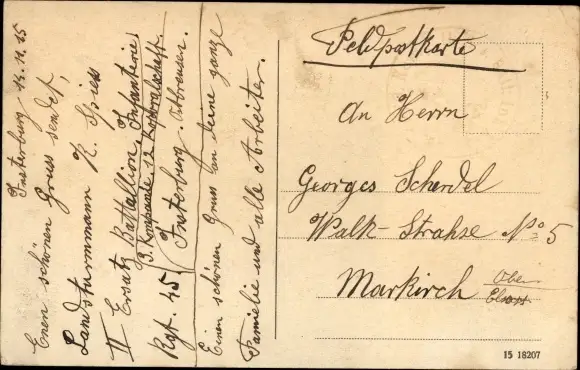 Insterburg 13.11.15
Einen schönen Gruss sendet,
Landsturmmann K. Spiess
II Ersatz Battallion, Infanterie
3. Kompanie. 12 Korporalschaft
Rgt. 45. Insterburg. Ostpreusen.
Einen schönen Gruss an deine ganze
Familie und alle Arbeiter.
Feldpostkarte
An Herrn
Georges Scherdel
Walk-Strahse No 5
Markirch Ober
Elsass
15 18207